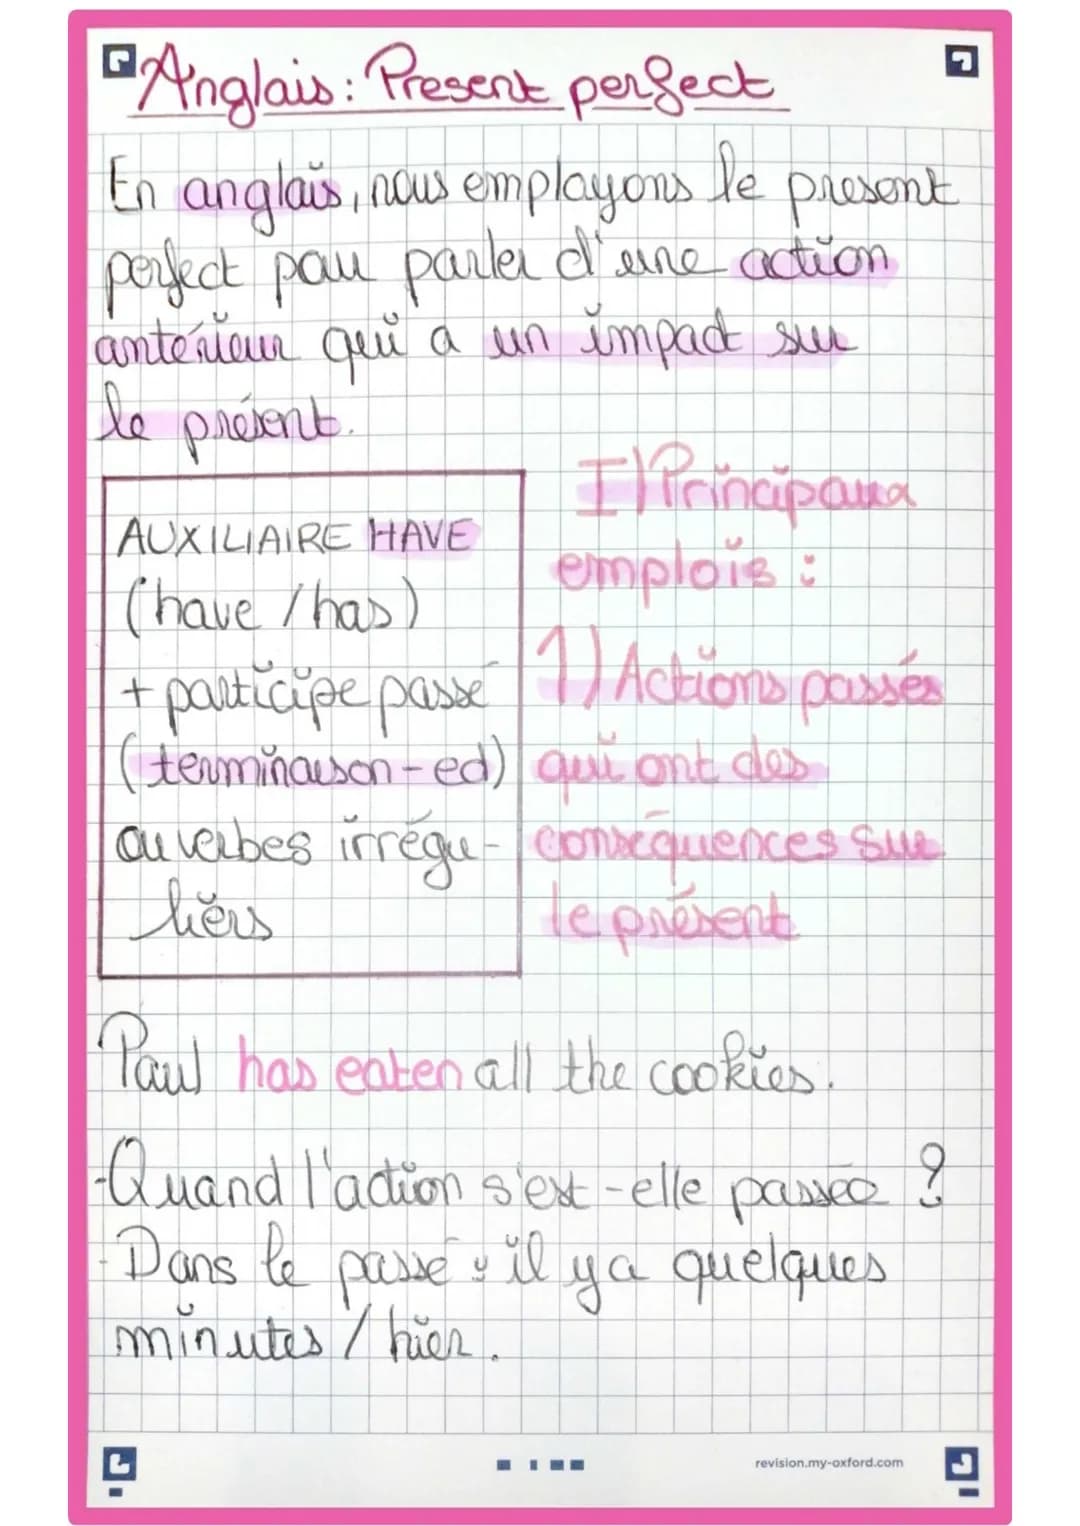 Anglais : Present perfect
En anglais, nous employons le present
perfect pour parler d'une action
antérieur qui a un impact sur
le présent.
AUXILIAIRE HAVE
(have / has)
+ participe passé
(terminaison - ed)
ou verbes irrégu-
liers
I) Principaux
emplois :
1) Actions passés
qui ont des
conséquences sur
le présent
Paul has eaten all the cookies.
- Quand l'action s'est-elle passée ?
- Dans le passé : il y a quelques
minutes / hier.
revision.my-oxford.com